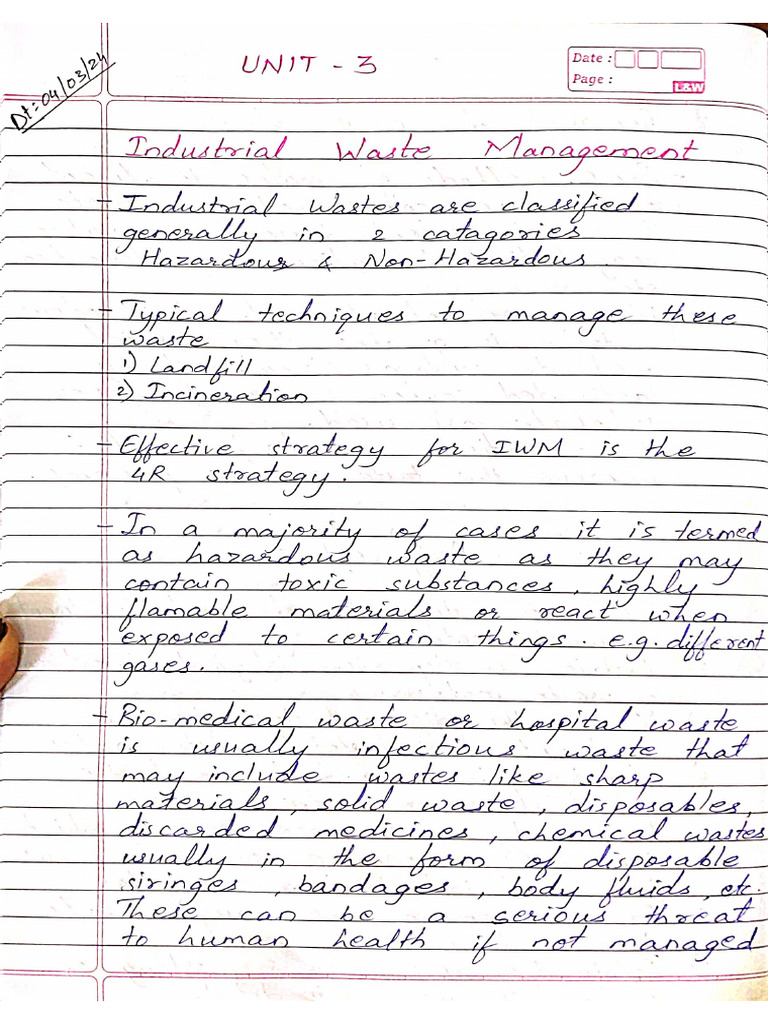 Dt: 04/03/24
UNIT - 3
Date :
Page :
L&W
Industrial Waste Management
- Industrial Wastes are classified
generally in 2 catagories
Hazardous & Non-Hazardous.
- Typical techniques to manage these
waste
1) Landfill
2) Incineration
- Effective strategy for IWM is the
4R strategy.
- In a majority of cases it is termed
as hazardous waste as they may
contain toxic substances, highly
flamable materials or react when
exposed to certain things. e.g. different
gases.
- Bio-medical waste or hospital waste
is usually infectious waste that
may include wastes like sharp
materials, solid waste, disposables,
discarded medicines, chemical wastes
usually in the form of disposable
siringes, bandages, body fluids, etc.
These can be a serious threat
to human health if not managed